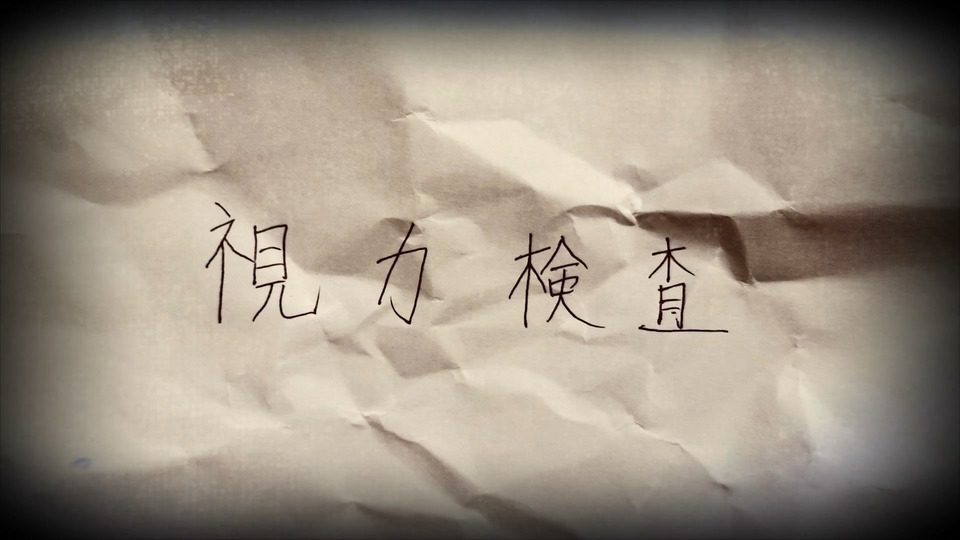 視力検査